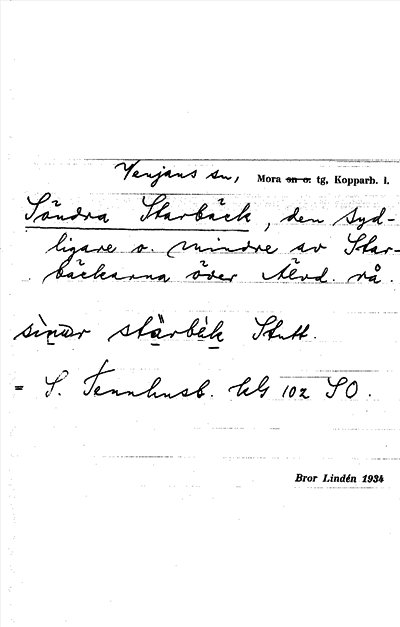 Venjans sn, Mora sn o. tg, Kopparb. l.
Söndra Starbäck, den syd-
ligare o. mindre av Star-
bäckarna över Älvd. rå.
stärbäk Stutt.
= S. Tennhusb. kG 102 SO.
Bror Lindén 1934